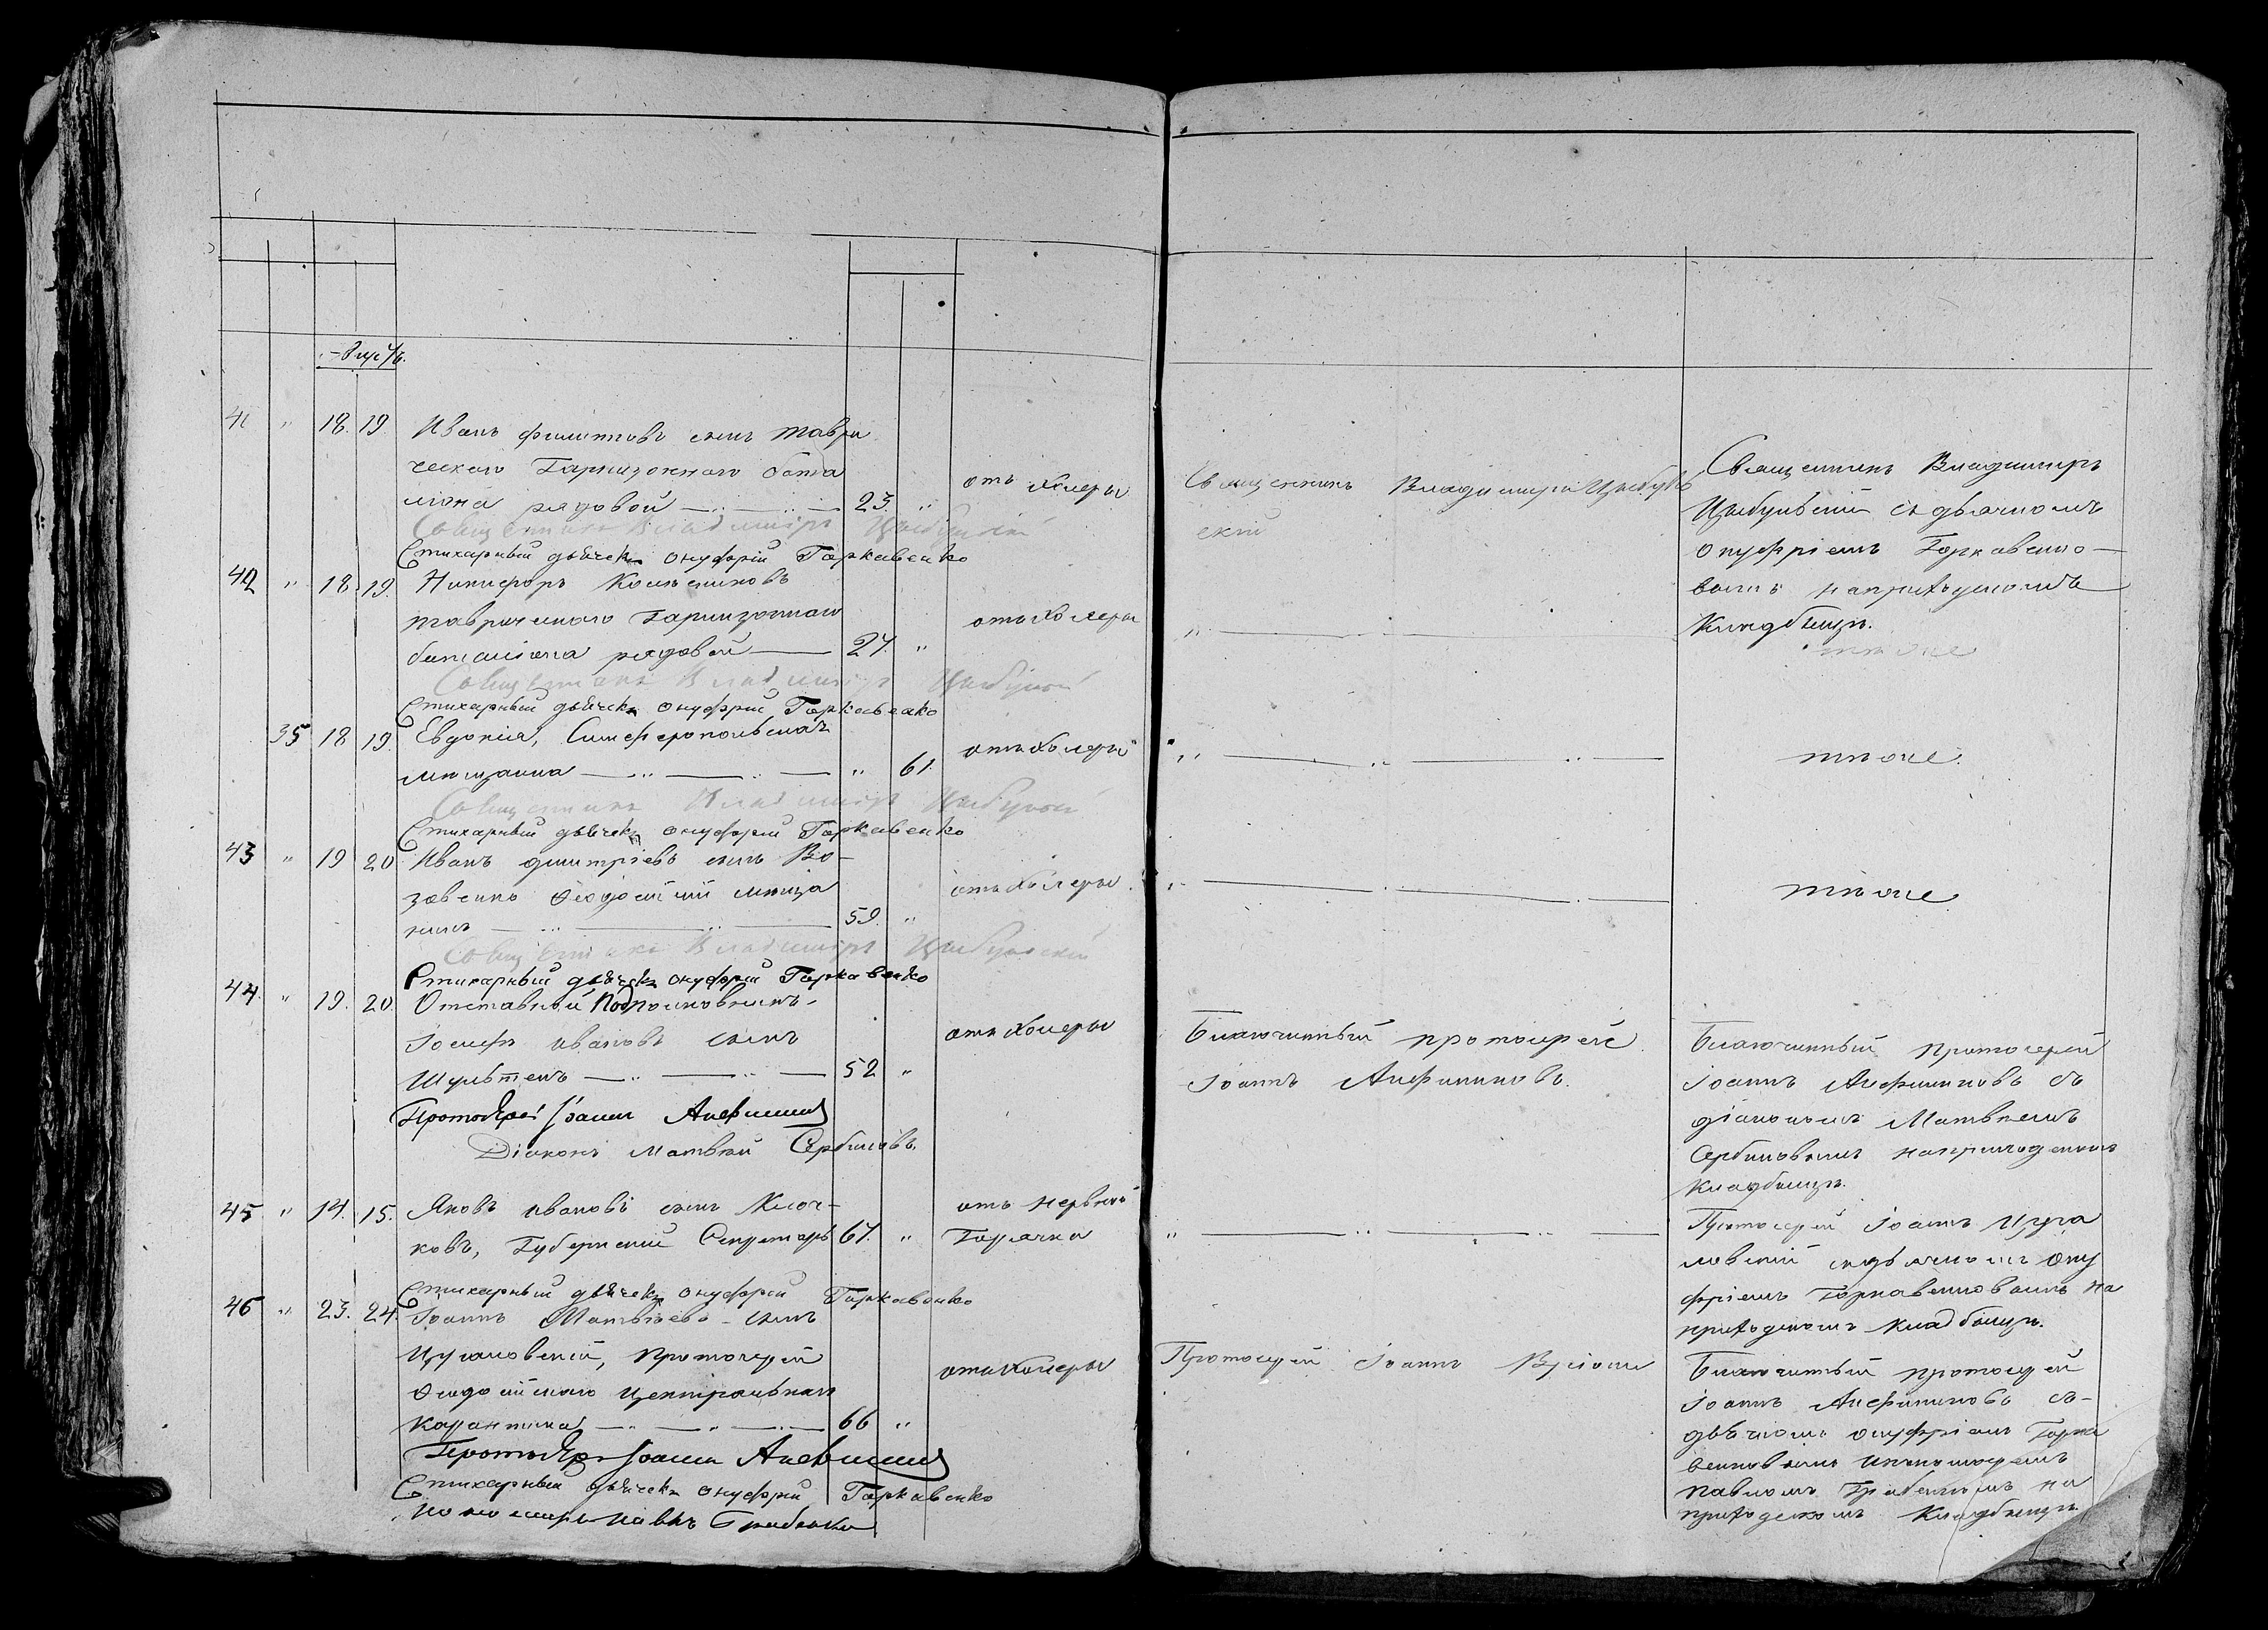 41 " 18. 19. Иванъ филипповъ сынъ таври
ческаго Гарнизоннаго бата
ліона рядовой 23. " отъ холеры
Священникъ Владиміръ Цыбульскій
Стихарный дьячекъ Онуфрій Гаркавенко
42 " 18. 19. Никифоръ
таврическаго Гарнизоннаго
баталіона рядовой 27. " отъ холеры
Священникъ Владиміръ Цыбульскій
Стихарный дьячекъ Онуфрій Гаркавенко
35 18 19 Евдокія, Симферопольская
мещанка " 61. отъ холеры
Священникъ Владиміръ Цыбульскій
Стихарный дьячекъ Онуфрій Гаркавенко
43 " 19 20 Иванъ дмитріевъ сынъ Во-
зовенко Феодосійскій мѣща
нинъ 59. " отъ холеры
Священникъ Владиміръ Цыбульскій
Стихарный дьячекъ Онуфрій Гаркавенко
44. " 19. 20. Отставной Подполковникъ
Іосифъ ивановъ сынъ
52 " отъ холеры
Протоіерей Іоаннъ Анфимовъ
Діаконъ Матвѣй Сербиновъ.
45 " 14. 15. Яковъ ивановъ сынъ Ключ-
ковъ, Губернскій Секретарь 67. " отъ нервной
Горячки
Стихарный дьячекъ Онуфрій Гаркавенко
46 " 23. 24. Іоаннъ Матвѣевъ сынъ
Цугаловскій, Протоіерей
Феодосійскаго центральнаго
карантина 66 " отъ холеры
Протоіерей Іоаннъ
Стихарный дьячекъ Онуфрій Гаркавенко
Пономарь Павелъ Грабенко
Священникъ Владиміръ Цыбуль
скій
Благочинный протоіерей
Іоаннъ
Протоіерей Іоаннъ
Священникъ Владиміръ
Цыбульскій съ дьячкомъ
Онуфріемъ Гаркавенко-
вымъ на приходскомъ
Кладбищѣ.
тѣ же
тѣ же.
тѣ же
Благочинный протоіерей
Іоаннъ съ
діакономъ Матвѣемъ
Сербиновымъ на приходскомъ
Кладбищѣ.
Протоіерей Іоаннъ Цуга
ловскій съ дьячкомъ Ону
фріемъ Гаркавенковымъ на
приходскомъ Кладбищѣ.
Благочинный протоіерей
Іоаннъ съ-
дьячкомъ Онуфріемъ Гарка
венковымъ и пономаремъ
Павломъ на
приходскомъ Кладбищѣ